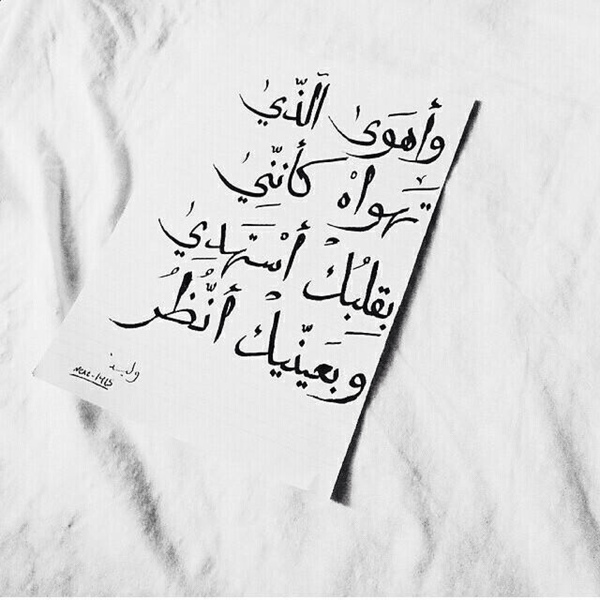 وأهوى الّذي
تهواهْ كأنّني
بقلبُكْ أسْتَهدي
وبعينّيكْ أنّظُر
وليد